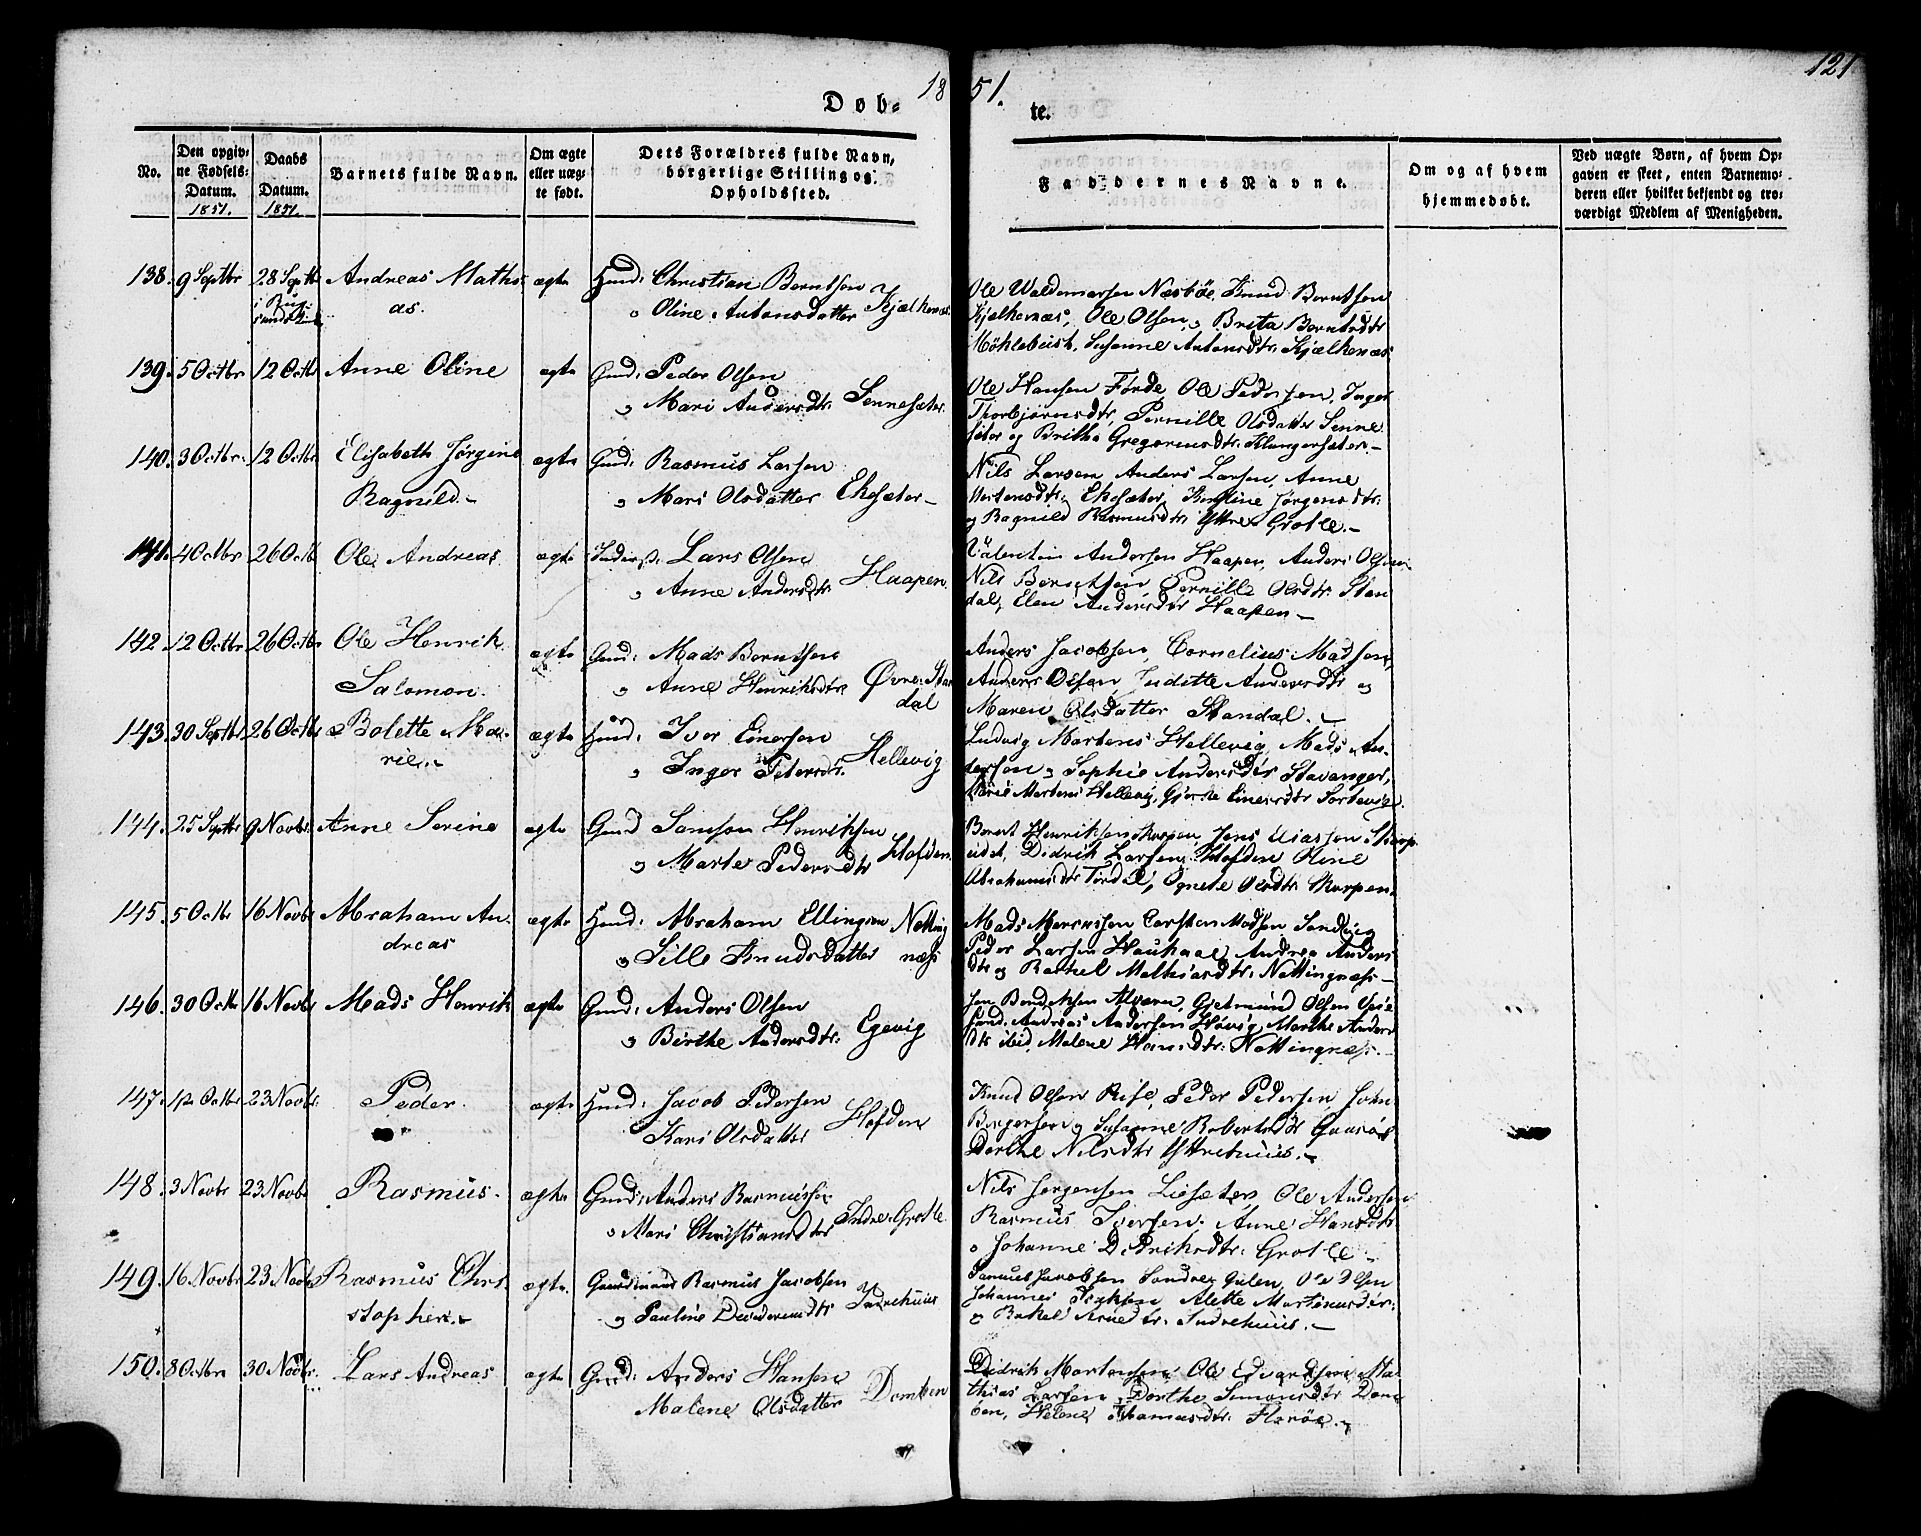 1851.
121
Døb-
te.
No.
Den opgiv-
ne Fødsels-
Datum.
1851.
Daabs
Datum.
1851.
Barnets fulde Navn.
Om ægte
eller uæg-
te født.
Dets Forældres fulde Navn,
borgerlige Stilling og
Opholdssted.
Faddernes Navne.
Om og af hvem
hjemmedøbt.
Ved uægte Børn, af hvem Op-
gaven er skeet, enten Barnemo-
deren eller hvilket bekjendt og tro-
værdigt Medlem af Menigheden.
138. 9 Septbr 28 Septbr Andreas Mathi- ægte Huusm: Christian Berntsen
as. " Oline Antonsdatter Kjælkenæs
Ole Waldemarsen Næsbøe, Knud Berntsen
Kjælkenæs, Ole Olsen, Brita Berntsdtr
Susanne Antonsdtr: Kjælkenæs
139. 5 Octbr 12 Octbr Anne Oline ægte Gmd: Peder Olsen
" Mari Andersdtr. Sennesæter.
Ole Hansen Førde, Ole Pedersen, Inger
Thorbjørnsdtr, Pernille Olsdatter Senne
sæter og Britha Gregoriusdtr.
140. 3 Octbr. 12 Octbr Elisabeth Jørgine ægte Gmd: Rasmus Larsen
Ragnild.- " Mari Olsdatter Ekesæter-
Nils Larsen, Anders Larsen, Anne
Mortensdtr: Ekesæter, Jørgensdtr:
og Ragnild Rasmusdtr: Yttre Grotle.-
141. 4 Octbr 26 Octb Ole Andreas ægte Lars Olsen
" Anne Andersdtr Haapen.
Valentin Andersen Haapen, Anders Olsen
Nils Pernille Olsdtr Stan
dal, Elen Andersdtr Haapen-
142. 12 Octbr 26 Octbr Ole Henrik ægte Gmd: Mads Berntsen
Salomon. " Anne Henriksdtr Øvre Stan
dal
Anders Jacobsen, Cornelius Madsen,
Anders Olsen, Juditte Andersdtr og
Maren Olsdatter Standal.-
143. 30 Septbr 26 Octbr Bolette Ma- ægte Huusm: Iver Einersen
rie.- " Inger Petersdtr. Hellevig
Ludvig Martens Hellevig, Mads An-
dersen, Sophie Andersdtr Stavanger,
Marie Martens Hellevig, Einersdtr
144. 25 Septbr 9 Novbr Anne Serine ægte Gmd Samson Henriksen
" Marte Pedersdtr Hofden
Bernt Henriksen Skorpen, Jens Eliassen
Didrik Larsen Hofden Oline
Abrahamsdtr Agnete Olsdtr Skorpen.
145. 5 Octbr 16 Novbr Abraham An- ægte Huusm: Abraham Ellingsen Notting
dreas " Sille Knudsdatter næss
Mads Carsten Madsen Sandvig
Peder Larsen Andrea Anders
dtr og Rachel Mathiasdtr. Nottingnæss-
146. 30 Octbr 16 Novbr Mads Henrik ægte Gmd: Anders Olsen
" Birthe Andersdtr: Egevig
Jens Bendiksen Gjetmund Olsen
Andreas Andersen Marthe Anders
dtr ibid, Malene Hansdtr: Nottingnæss.-
147. 12 Octbr 23 Novbr. Peder. ægte Huusm: Jacob Pedersen
Kari Olsdatter Hofden
Knud Olsen Rise, Peder Pedersen, John
Børgersen, Susanne Robertsdtr
Dorthe Nilsdtr Yttrehuus.-
148. 3 Novbr 23 Novbr Rasmus. ægte Gmd: Anders Rasmussen
" Mari Christiansdtr Indre Grotle
Nils Jørgensen Liesæter, Ole Andersen
Rasmus Iversen. Anne Hansdtr
" Johanne Didriksdtr. Grotle-
149. 16 Novbr 23 Novbr Rasmus Chri- ægte. Gaardmand Rasmus Jacobsen
stopher.- " Pauline Indrehuus
Samuel Jacobsen Søndre Gulen, Ole Olsen
Johannes Alette Martinusdtr.
" Rakel Indrehuus.-
150. 8 Octbr 30 Novbr. Lars Andreas ægte Gmd: Anders Hansen
Malene Olsdatter Domben
Didrik Mortensen, Ole Edvardsen, Ma-
thias Larsen, Dorthe Simonsdtr Dom-
ben, Helene Thomasdtr: Florøe.-